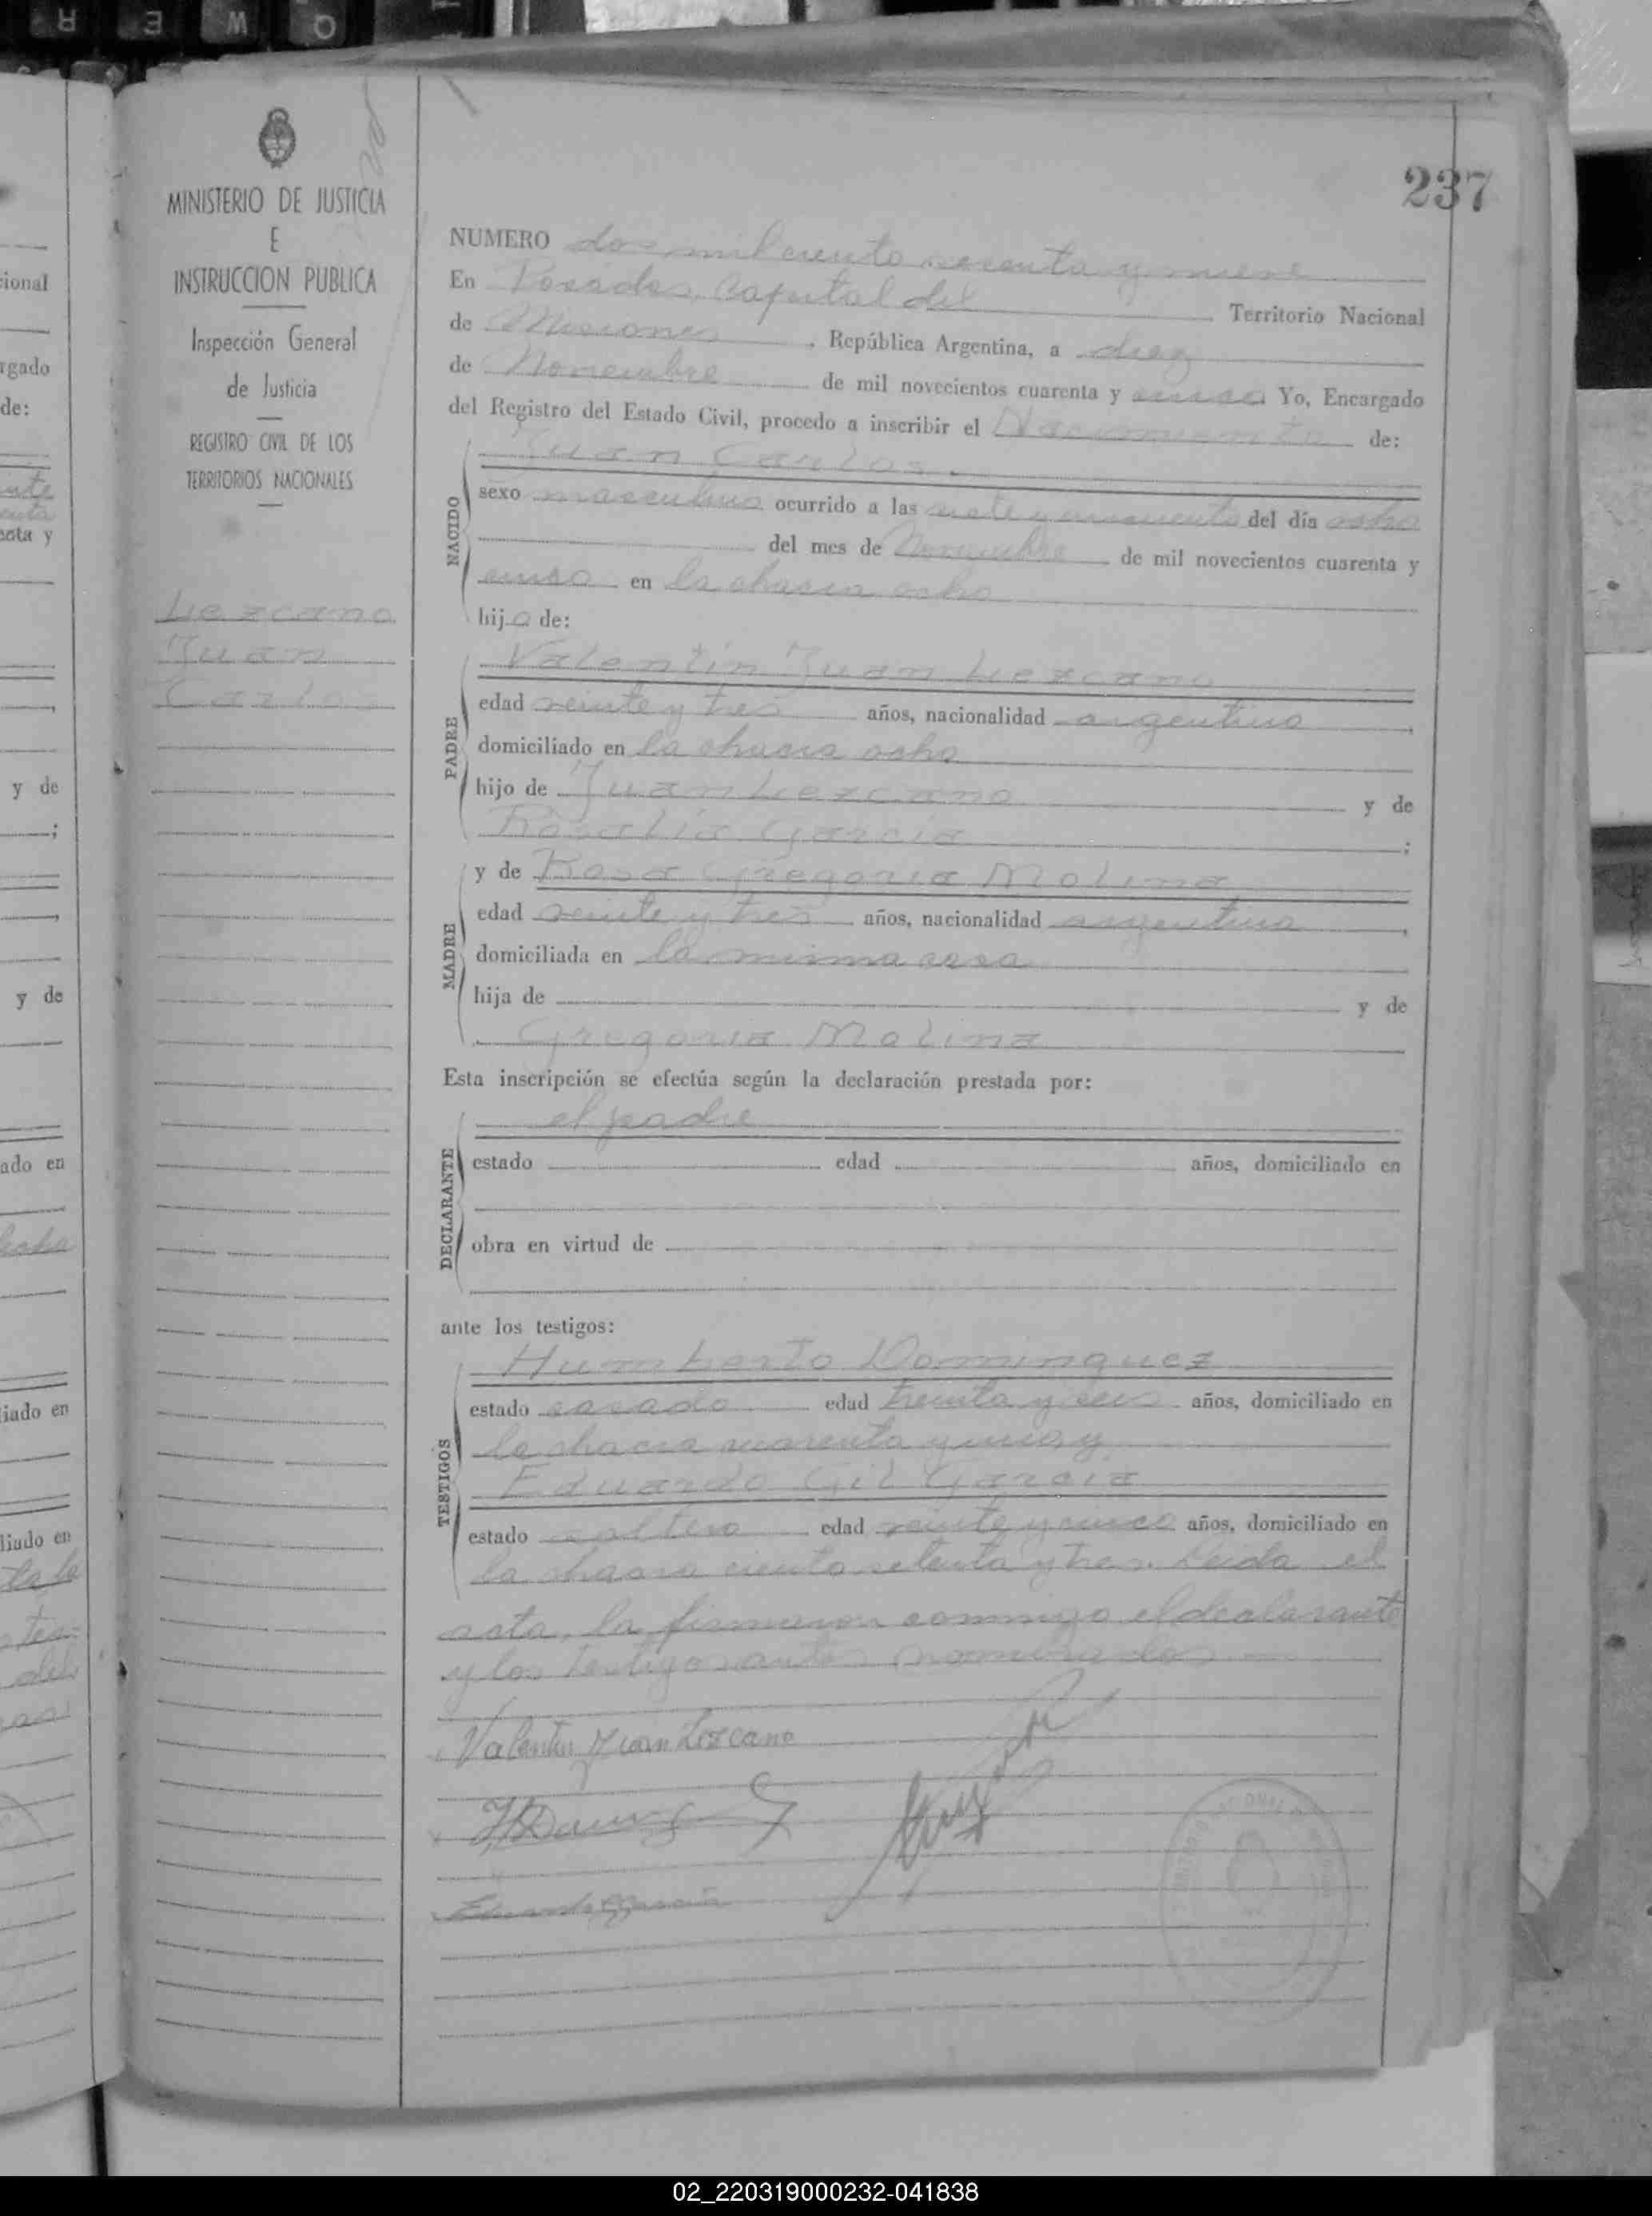 237
MINISTERIO DE JUSTICIA
E
INSTRUCCION PUBLICA
Inspección General
de Justicia
REGISTRO CIVIL DE LOS
TERRITORIOS NACIONALES
Lezcano
Juan
Carlos
NUMERO dos mil ciento y nueve
En Posadas, Capital del Territorio Nacional
de Misiones, República Argentina, a diez
de Noviembre de mil novecientos cuarenta y Yo, Encargado
del Registro del Estado Civil, procedo a inscribir el Nacimiento de:
NACIDO
Juan Carlos.
sexo masculino ocurrido a las siete y cincuenta del día ocho
del mes de Noviembre de mil novecientos cuarenta y
en la chacra ocho
hijo de:
PADRE
Valentín Juan Lezcano
edad veinte y tres años, nacionalidad argentino
domiciliado en la chacra ocho
hijo de Juan Lezcano y de
Rosalía García;
MADRE
y de Rosa Gregoria Molina
edad veinte y tres años, nacionalidad argentina,
domiciliada en la misma casa
hija de y de
Gregoria Molina
Esta inscripción se efectúa según la declaración prestada por:
DECLARANTE
el padre
estado edad años, domiciliado en
obra en virtud de
ante los testigos:
TESTIGOS
Humberto Dominguez
estado casado edad treinta y seis años, domiciliado en
la chacra cuarenta y una y
Eduardo Gil García
estado soltero edad veinte y cinco años, domiciliado en
la chacra ciento setenta y tres. Leída el
acta, la firmaron conmigo el declarante
y los testigos antes nombrados
Valentin Juan Lezcano
ional
rgado
de:
y de
y de
ado en
liado en
liado en
02_220319000232-041838